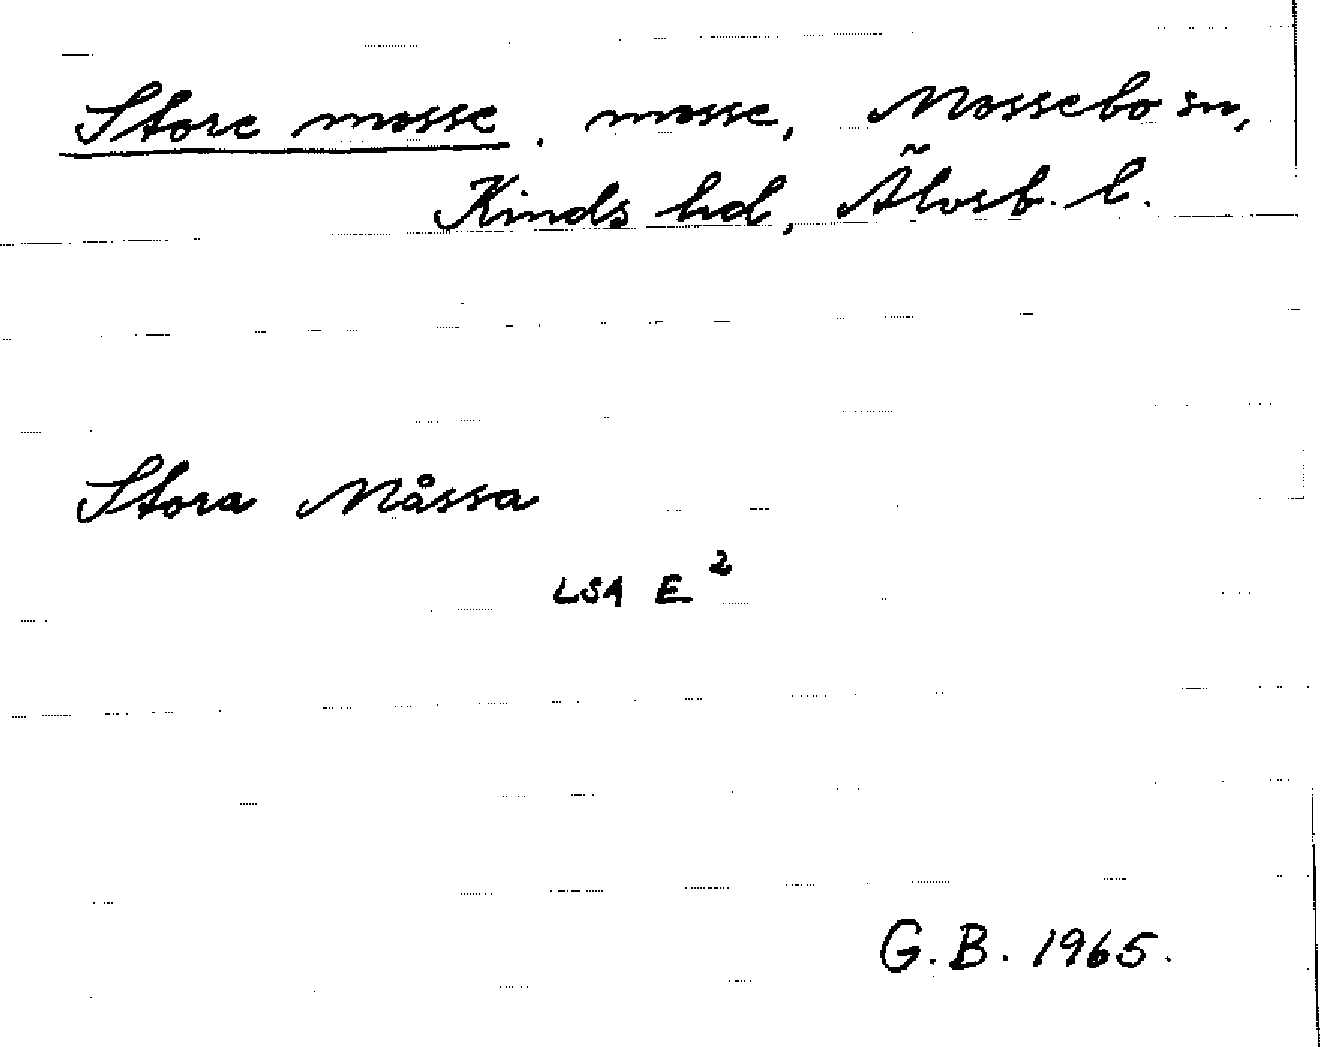 Store mosse, mosse, Mossebo sn,
Kinds hd, Älvsb. l.
Stora Måssa
LSA E²
G.B. 1965.